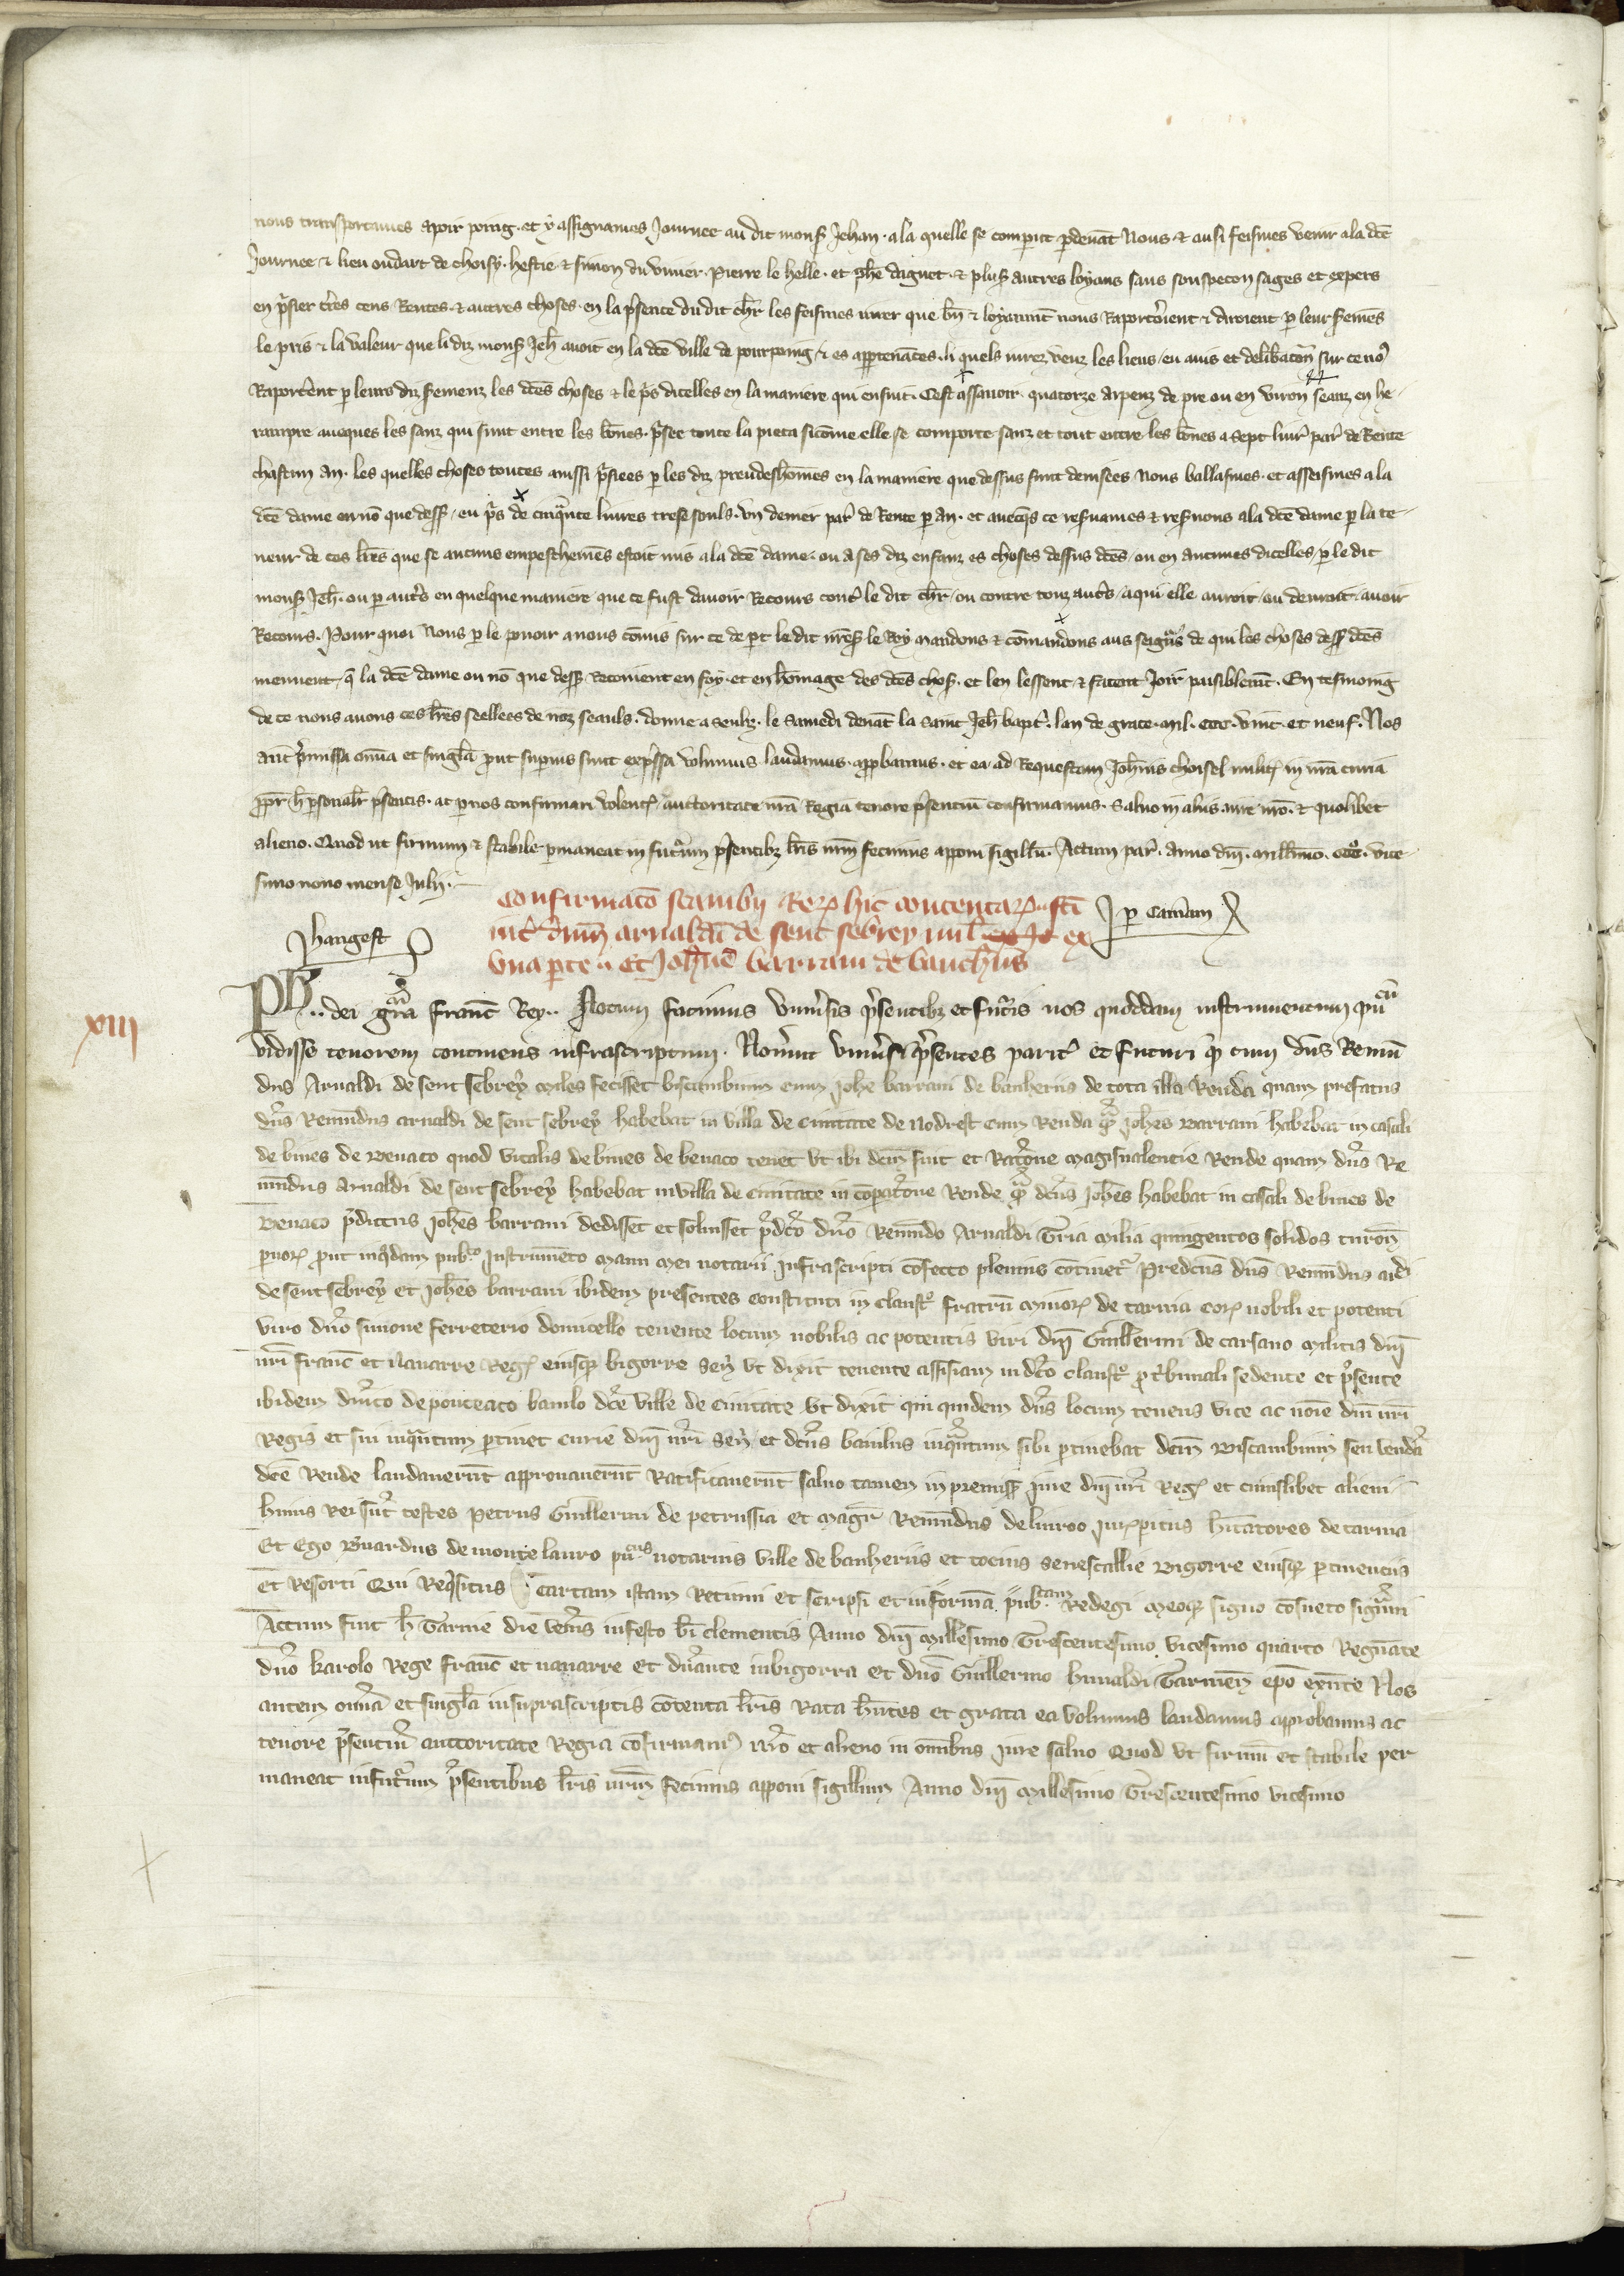 nous transportames a pour poing. et y assignames Journee au dit mons Jehan. a la quelle se comparut p devāt Nous & ausi feismes venir a la dcē
Journee & lieu oudart de choisy. hestie & simon du vivier. Pierre le helle. et phē daguet. & plus autres loyaus sans souspecon sages et expers
en prisier trēs cens Rentes. & autres choses. en la psence du dit chr les feismes iurer que bn & loyaumt nous Raporteroient & diroient p leur sermēs
le pris & la valeur que li diz mons Jeh avoit en la dcē ville de pourpoing & es appertenāces. li quels iurez veuz les lieus / eu avis et deliberacōn sur ce no9
Raporterēt p leurs diz sermenz les dcēs choses & le pris dicelles en la maniere qui ensuit. Cest assavoir. quatorze arpenz de pre ou en viron seanz en he-
raupre aueques les sauz qui sunt entre les bōnes. prisee toute la pieca sicōme elle se comporte sauz et tout entre les bōnes a sept liur par de Rente
chascun an. les quelles choses toutes aussi prisiees p les diz preudeshōmes en la maniere que dessus sunt devisees Nous baillasmes. et asseismes a la
dcē dame ou nō que dess / en pris de cinquante livres trese souls. vn denier par de Rente p an. et avecqs ce reservames & reservons a la dcē dame p la te-
neur de ces lrēs que se aucuns empeschemēs estoit mis a la dcē dame. ou a ses diz enfanz es choses dessus dcēs / ou en aucunes dicelles / p le dit
mons Jeh. ou p autrs en quelque maniere que ce fust davoir Recours contr le dit chr / ou contre touz autrs / a qui elle auroit / ou devroit. avoir
Recours. Pour quoi Nous p le povoir a nous cōmis sur ce de p le dit nres le Roy mandons & cōmandons aus seigurs de qui les choses dess dcēs
meuvent / q la dcē dame ou nō que dess Recoivent en foy. et en hōmage des dcēs chos. et len lessent & facent Joir paisiblemt. En tesmoing
de ce nous avons ces lrēs seellees de noz seauls. donne a senliz. le samedi devāt la saint Jeh bapt. lan de grace. mil. ccc. vint. et neuf. Nos
aut pmissa omīa et singla put supius sunt expssa volumus. laudamus. appbamus. et ea ad Requestam Johnis choisel milit in nrā curia
ppr h psonalr psentis. ac p nos confirmari volent auctoritate nrā Regia tenore psentiū confirmamus. Salvo in aliis iure nro. & quolibet
alieno. Quod ut firmum & stabile pmaneat in futurum psentibz lris nrm fecimus apponi sigillū. Actum par. anno dni. millimo. ccc. vice-
simo nono mense Julii.
Confirmaco scambii Rer hic contentar fti
int dnm arnaldi de sent sebrey mil ex
vna parte et Johnē barrani de banheriis
p Camam
Jhangest
xiii
Ph.. dei gra franc Rex.. Notum facimus vnivsis psentibz et futuris nos quoddam instrumentum publicū
vidisse tenorem continens infrascriptum. Noverint vnivsi psentes parit et futuri q cum dns Remū
dus Arnaldi de sent sebrey miles fecisset biscambium cum Johe barrani de banheriis de tota illa Renda quam prefatus
dns Remundus arnaldi de sent sebrey habebat in villa de civitate de nodrest cum Renda q Johes barrani habebat in casali
de bines de benaco quod vitalis de bines de benaco tenet vt ibi dcm fuit et Racone magisvalentie Rende quam dns Re
mundus Arnaldi de sent sebrey habebat in villa de civitate in copacone Rende q dcus Johes habebat in casali de bines de
benaco pdictus Johes barrani dedisset et solvisset pdco dno Remundo Arnaldi Tria milia quingentos solidos turon
pvor put in qdam pub Instrumēto manu mei notarii Infrascripti cōfecto plenius cōtinet Predcus dns Remundus ar
de sent sebrey et Johes barrani ibidem presentes constituti in claust fratrū minor de tarvia cor nobili et potenti
viro dno simone ferreterio domicello tenente locum nobilis ac potentis viri dni Guillermi de carsano militis dni
nri franc et navarre Reg eiusq bigorre sen vt dixit tenente assisiam in dco claust p tbunali sedente et psente
ibidem dnico de ponteaco baiulo dce ville de civitate vt dixit qui quidem dns locum tenens vice ac noie dni nri
Regis et sui inquantum ptinet curie dni nri sen et dcus baiulus inquantum sibi ptinebat dcm biscambium seu vend
dce Rende laudaverūt approuaverūt Ratificaverūt salvo tamen in premiss iure dni nri Reg et cuiuslibet alieni
huius Rei sut testes Petrus Guillermi de petrussia et magr Remundus de livroo iurpitus hitatores de tarvia
Et Ego Bnardus de monte lauro pucus notarius ville de banheriis et tocius senescallie Bigorre eiusq ptinenciis
et Ressorti Qui Reqsitus cartam istam Retinui et scripsi et in forma pubcam Redegi meoq signo cōsueto signavi
Actum fuit h Tarvie die venis in festo bi clementis Anno dni millesimo Trescentesimo vicesimo quarto Regnate
dno karolo Rege franc et navarre et dnante in bigorra et dno Guillermo hunaldi Tarvien epo exnte Nos
autem omia et singla in suprascriptis cōtenta lris Rata hntes et grata ea volumus laudamus aprobamus ac
tenore psentiū auctoritate Regia cōfirmam nro et alieno in omibus iure salvo Quod vt firmū et stabile per
maneat in futurum psentibus lris nrm fecimus apponi sigillum Anno dni millesimo Trescentesimo vicesimo